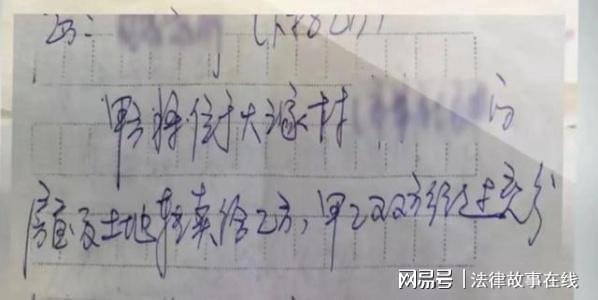 甲方将位于大瑶村 的
房屋及土地转卖给乙方，甲乙双方经过充分
网易号 | 法律故事在线